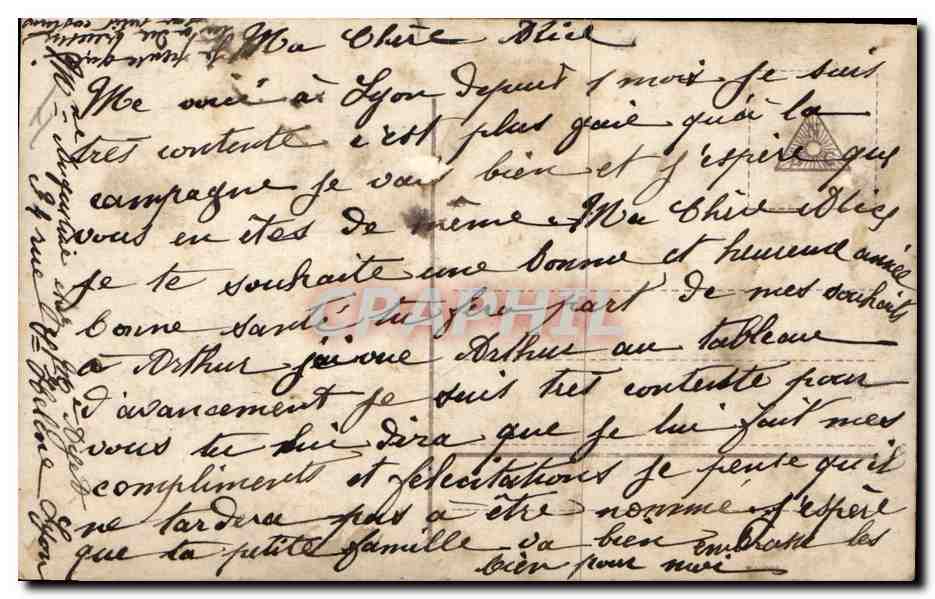 Ma Chère Alice
Me voici à Lyon depuis 1 mois je suis
très contente c'est plus gaie qu'à la
campagne je vais bien et j'espère que
vous en êtes de même. Ma Chère Alice
je te souhaite une bonne et heureuse année
bonne santé tu fera part de mes souhaits
à Arthur j'ai vue Arthur au tableau
d'avancement je suis très contente pour
vous tu lui dira que je lui fait mes
compliments et félicitations je pense qu'il
ne tardera pas a être nommé j'espère
que ta petite famille va bien embrasse les
bien pour moi
34 rue Ste Hélène Lyon
CPAPHIL